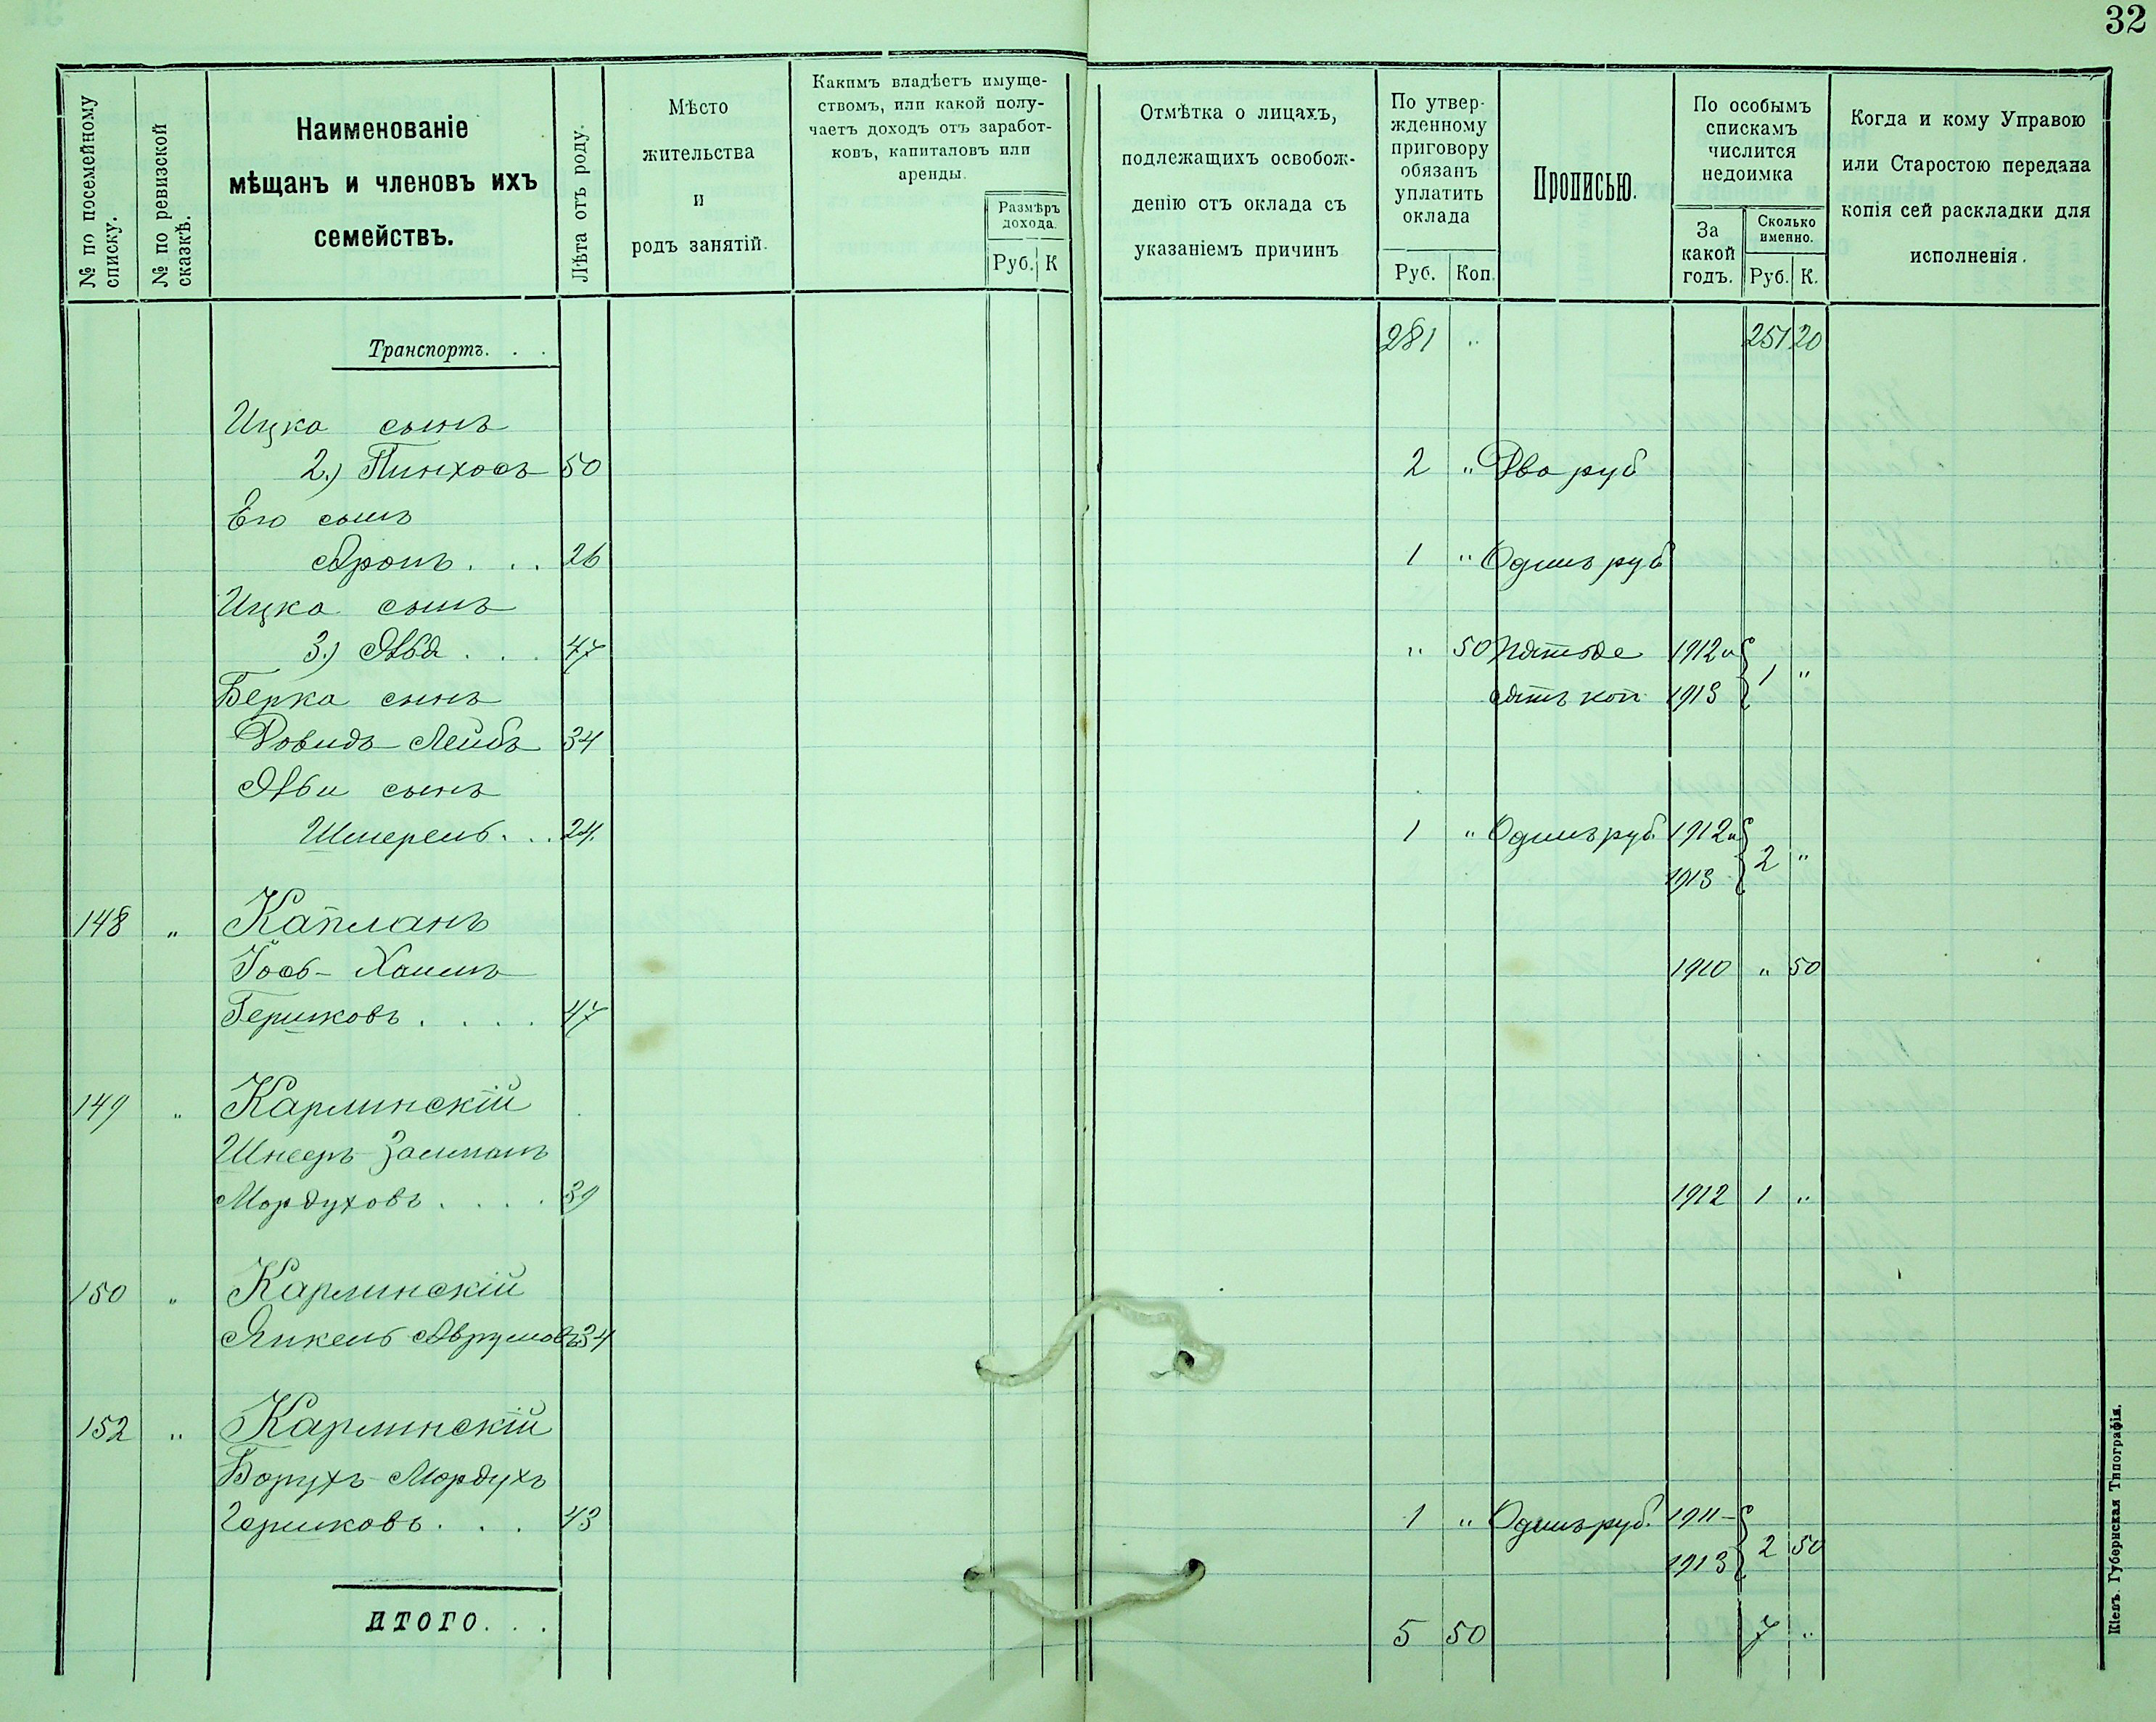 32
№ по посемейному списку.
№ по ревизской сказкѣ.
Наименованіе мѣщанъ и членовъ ихъ семействъ.
Лѣта отъ роду.
Мѣсто жительства и родъ занятій.
Какимъ владѣетъ имуще-
ствомъ, или какой полу-
чаетъ доходъ отъ заработ-
ковъ, капиталовъ или
аренды.
Размѣръ дохода.
Руб. К
Отмѣтка о лицахъ,
подлежащихъ освобож-
денію отъ оклада съ
указаніемъ причинъ
По утвер-
жденному
приговору
обязанъ
уплатить
оклада
Руб. Коп.
Прописью.
По особымъ
спискамъ
числится
недоимка
За какой годъ.
Сколько именно.
Руб. К.
Когда и кому Управою
или Старостою передана
копія сей раскладки для
исполненія.
Транспортъ. . . 281 " 251 20
Ицка сынъ
2.) Пинхосъ 50 2 " Два руб
Его сынъ
Аронъ . . . 26 1 " Одинъ руб
Ицка сынъ
3.) Лѣба . . . 47 " 50 Пятьде 1912 и 1 "
Берка сынъ сятъ коп 1913
Довидъ-Лейбъ 34
Лѣби сынъ
Шмерель . . . 24. 1 " Одинъ руб. 1912 и 2 "
1913
148 " Капланъ
Іось-Хаимъ 1910 " 50
Гершковъ . . . . 47
149 " Карлинскій
Шнееръ-Залманъ
Мордуховъ . . . . 39 1912 1 "
150 " Карлинскій
Янкель Аврумовъ 34
152 " Карлинскій
Борухъ-Мордухъ
Гершковъ . . . 43 1 " Одинъ руб. 1911- 2 50
1913
ИТОГО. . . 5 50 7 "
Кіевъ. Губернская Типографія.